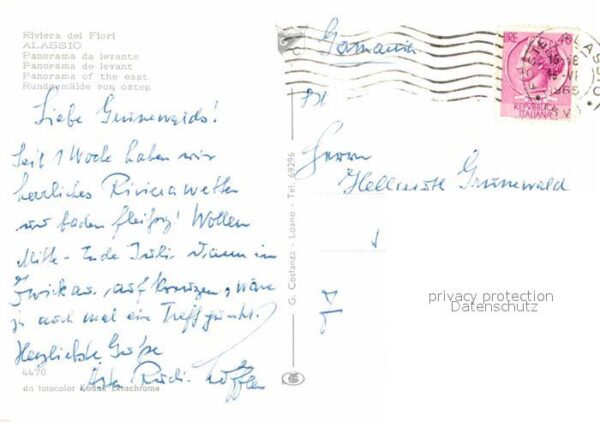 Riviera dei Fiori
ALASSIO
Panorama da levante
Panorama de levant
Panorama of the east
Rundgemälde von osten
Germania
LIRE
REPVBBLICA
ITALIANA
1965
Liebe Grunewalds!
Seit 1 Woche haben wir
herrliches Rivierawetter
und baden fleißig! Wollen
Mitte - Ende Juli dann in
Zwickau, auf Kreuzen, wäre
ja auch mal ein Treffpunkt.
Herzlichste Grüße
Rudi Löffler
Herrn
Hellmuth Grunewald
G. Costanza - Loano - Tel. 69296
4470
da fotocolor Kodak Ektachrome
privacy protection
Datenschutz